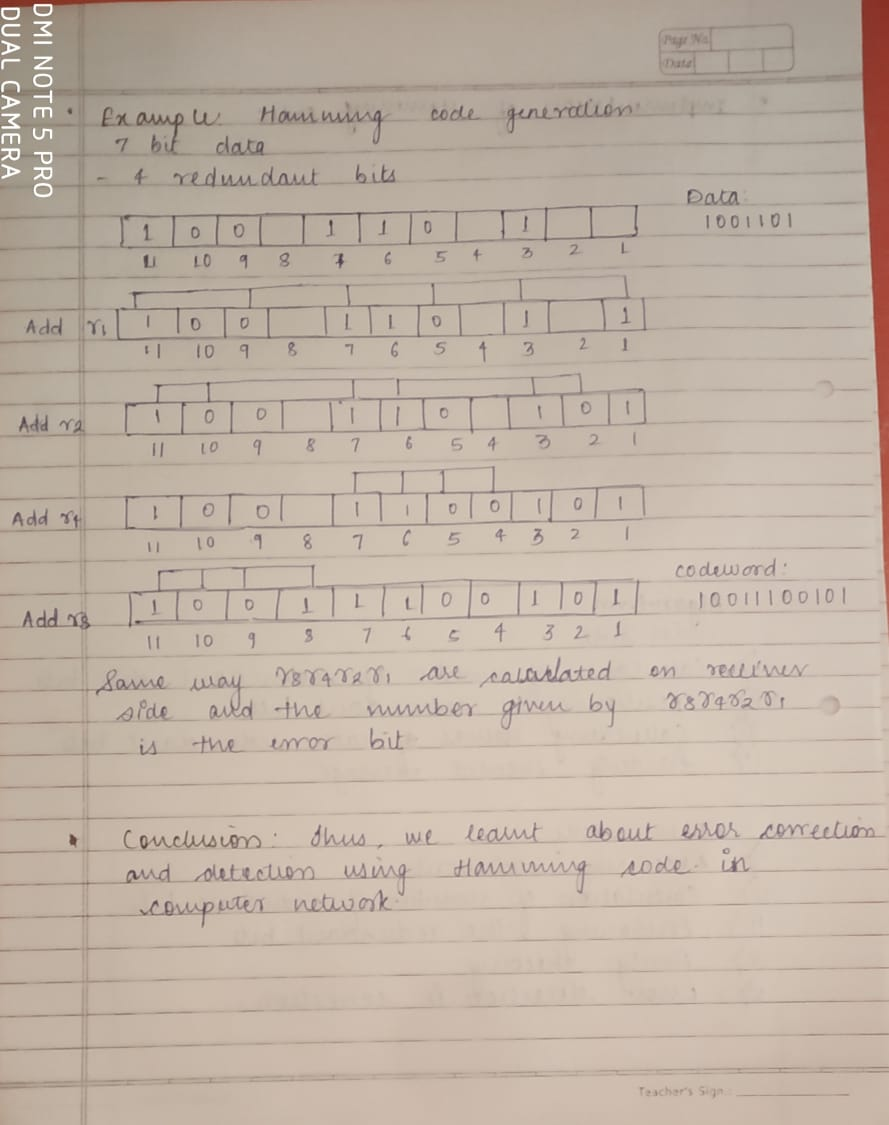 DMI NOTE 5 PRO
DUAL CAMERA
Page No.
Date
Example: Hamming code generation
7 bit data
- 4 redundant bits
Data:
1001101
1 0 0 1 1 0 1
11 10 9 8 7 6 5 4 3 2 1
Add r1 1 0 0 1 1 0 1 1
11 10 9 8 7 6 5 4 3 2 1
Add r2 1 0 0 1 1 0 1 0 1
11 10 9 8 7 6 5 4 3 2 1
Add r4 1 0 0 1 1 0 0 1 0 1
11 10 9 8 7 6 5 4 3 2 1
codeword:
10011100101
Add r8 1 0 0 1 1 1 0 0 1 0 1
11 10 9 8 7 6 5 4 3 2 1
Same way r8r4r2r1 are calculated on receiver
side and the number given by r8r4r2r1
is the error bit
Conclusion: Thus, we learnt about error correction
and detection using Hamming code in
computer network.
Teacher's Sign.: